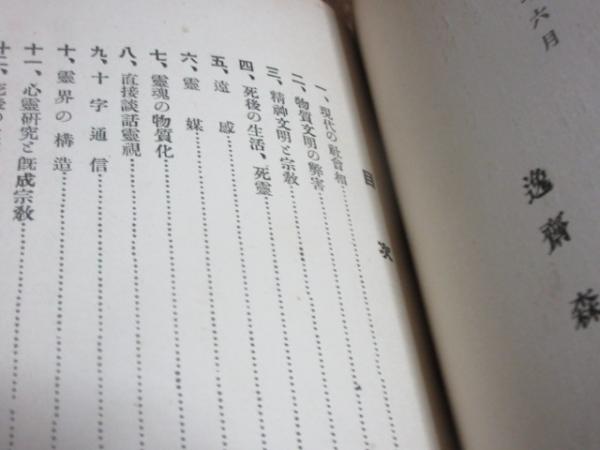 六月
逸齋 森
目次
一、現代の社會相
二、物質文明の弊害
三、精神文明と宗教
四、死後の生活、死靈
五、遠感
六、靈媒
七、靈魂の物質化
八、直接談話靈視
九、十字通信
十、靈界の構造
十一、心靈研究と既成宗教
十二、死後の